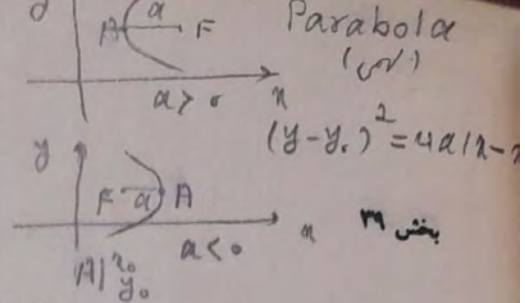 y
A a F
Parabola
a > 0 x
(y-y₀)² = 4a(x-x
y
F a A
a < 0 x
بخش ۳۹
A|x₀
y₀